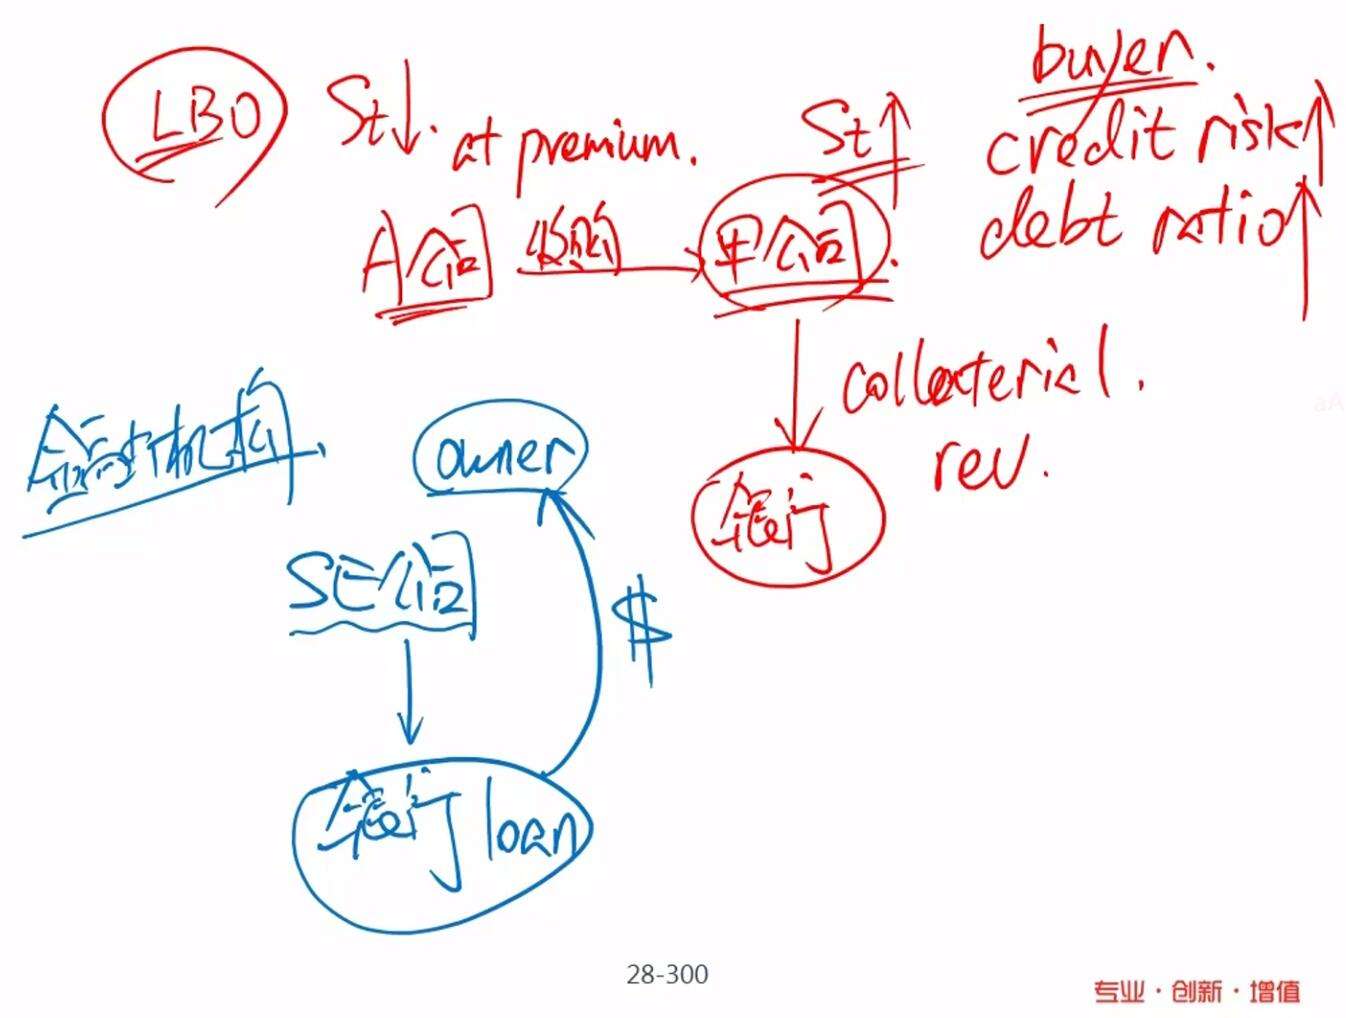 LBO
St↓. at premium.
St↑
buyer.
credit risk↑
debt ratio↑
A公司 收购 → 甲公司.
collecterial.
rev.
银行
金融机构.
owner
SE公司
$
银行 loan
28-300
专业·创新·增值
aA